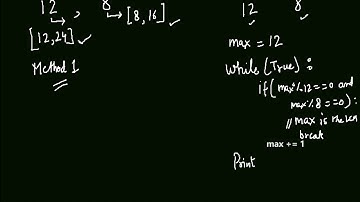 12 8
[8,16]
[12,24]
Method 1
12 8
max = 12
while(True) :
if(max%12==0 and
max%8==0):
// max is the lcm
break
max += 1
Print